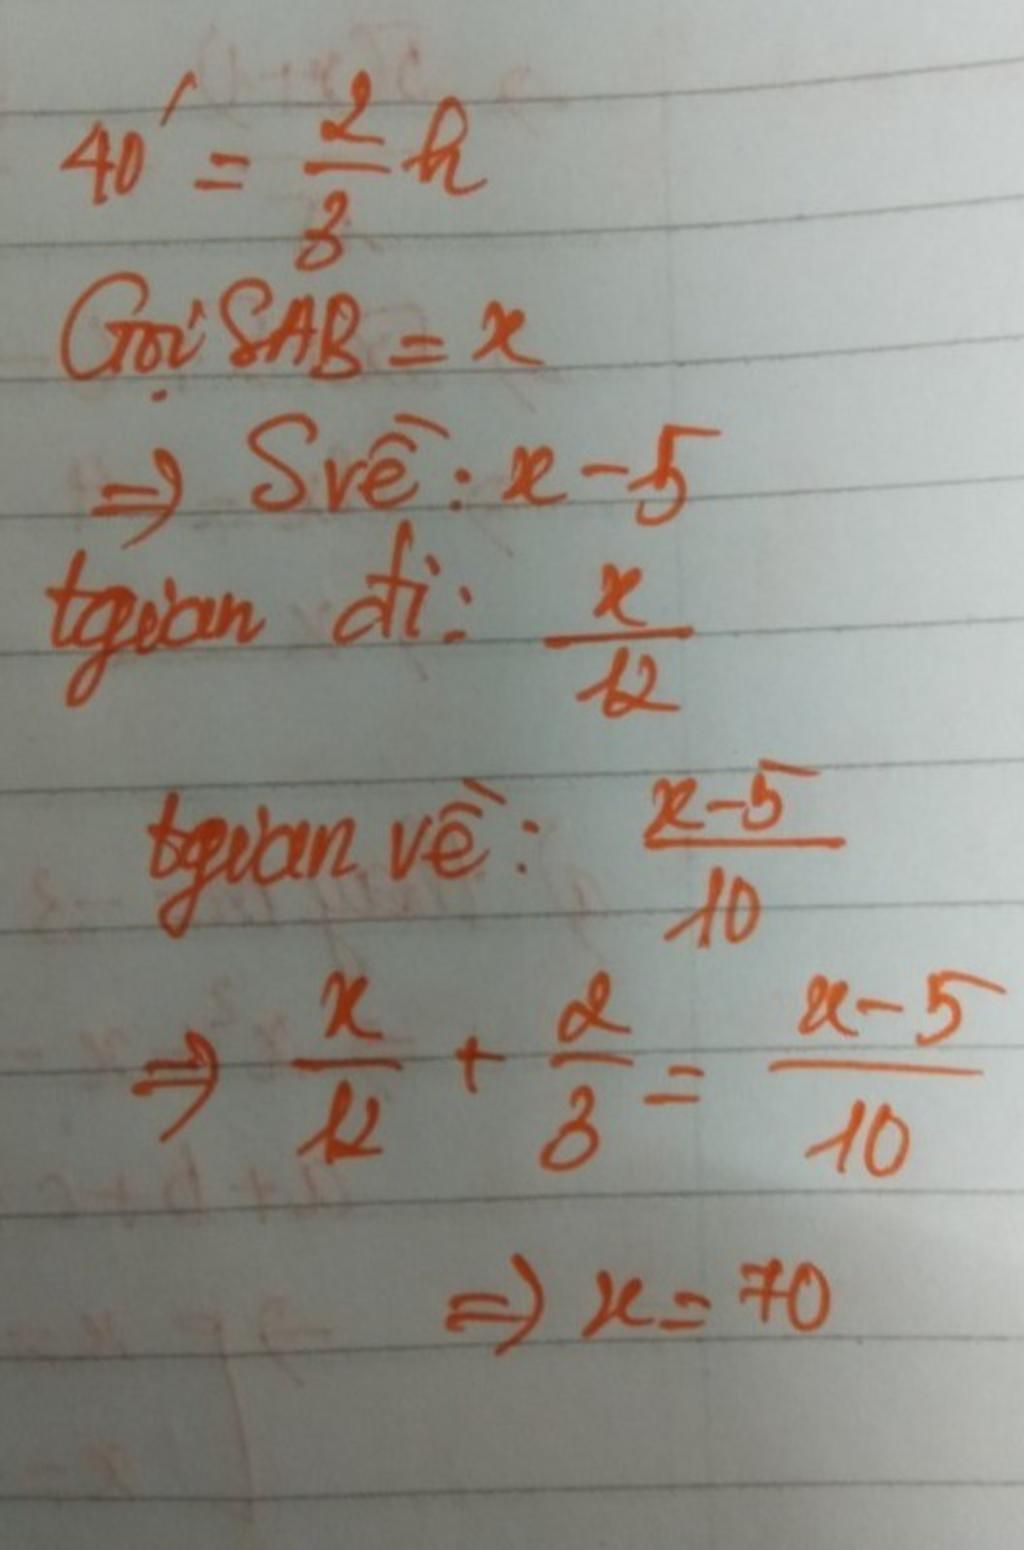 40' = 2/3 h
Gọi SAB = x
⇒ S về: x - 5
tgian đi: x/12
tgian về: x-5/10
⇒ x/12 + 2/3 = x-5/10
⇒ x = 70